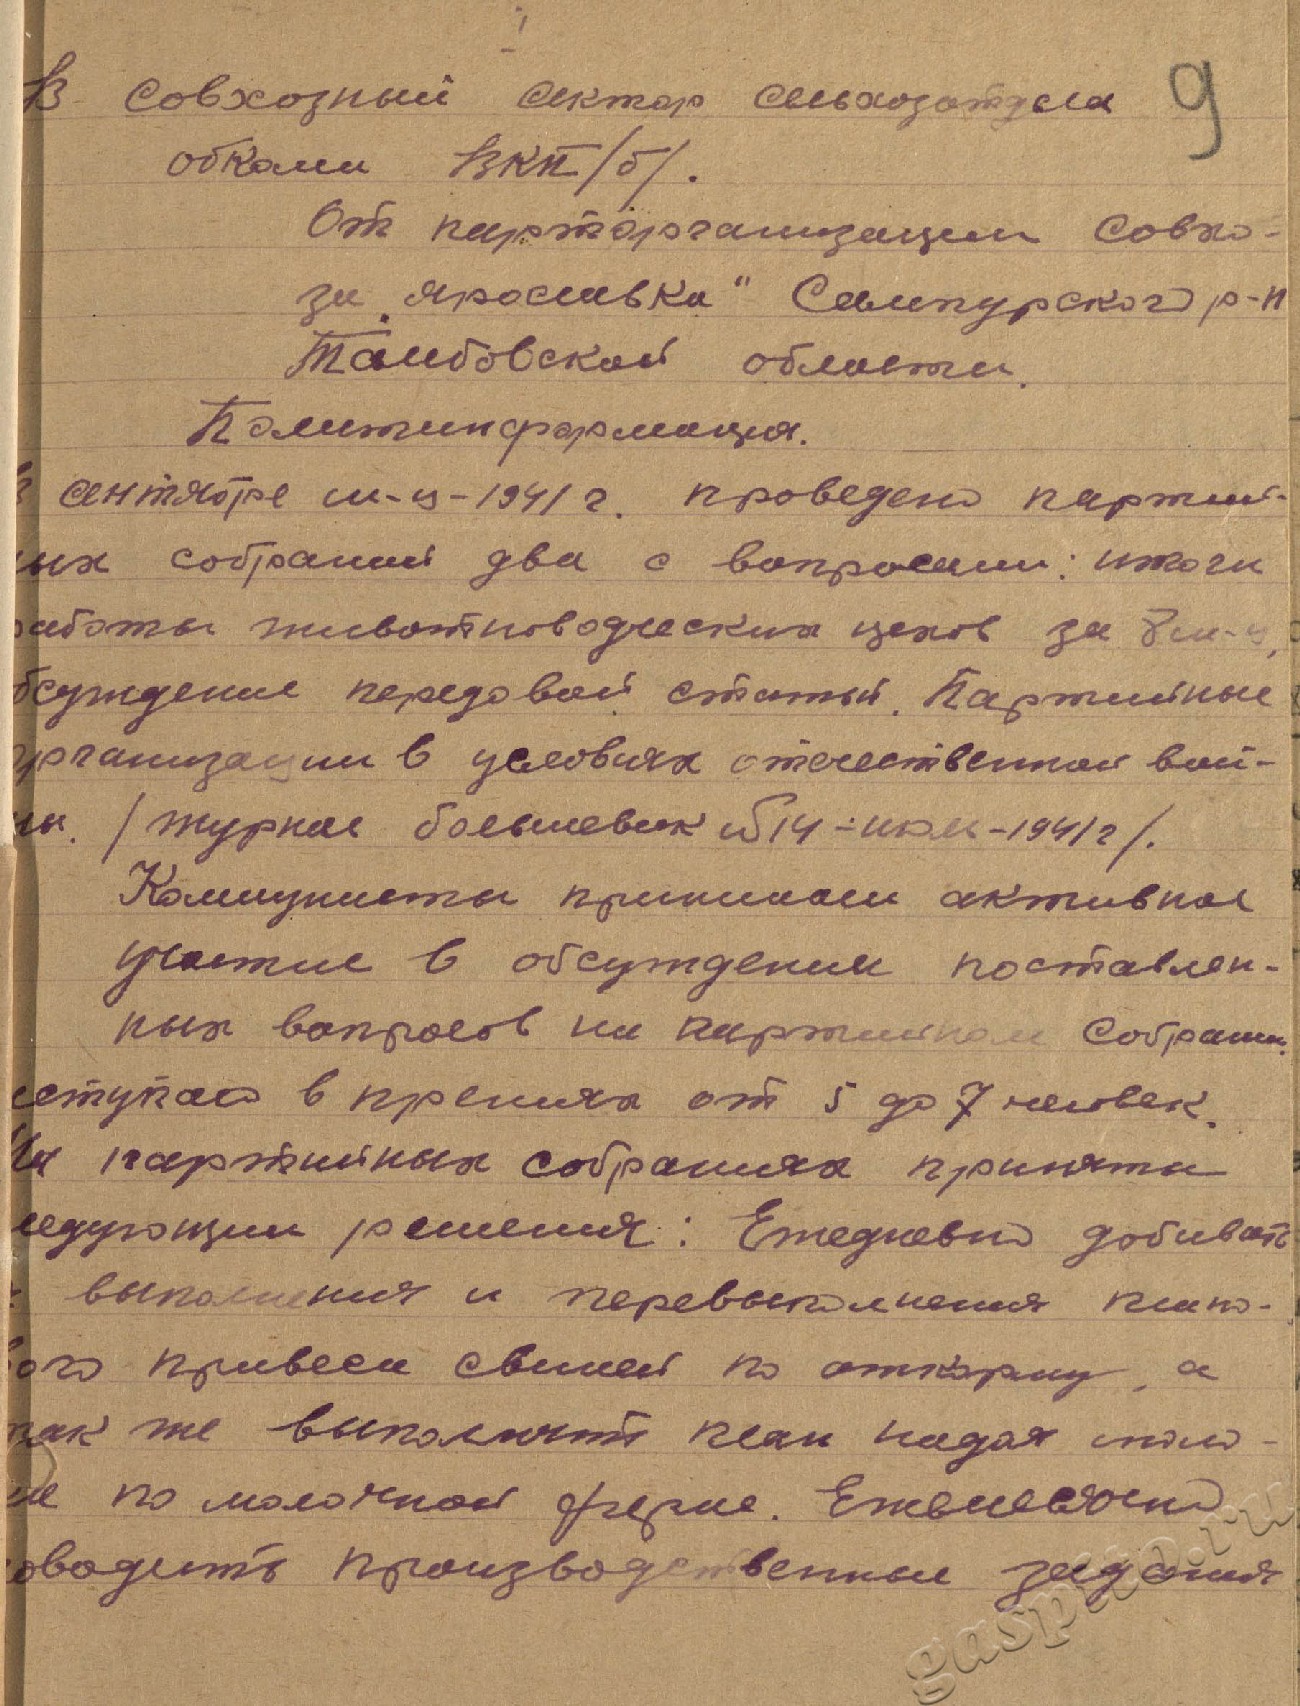 9
В совхозный сектор сельхозотдела
обкома ВКП/б/.
От парторганизации совхо-
за „Ярославка" Сампурского р-н
Тамбовской области.
Политинформация.
В сентябре м-ц-1941 г. проведено партий-
ных собраний два с вопросами: итоги
работы животноводческих цехов за 8 м-ц,
обсуждение передовой статьи. Партийные
организации в условиях отечественной вой-
ны. /журнал большевик №14-июль-1941 г/.
Коммунисты принимали активное
участие в обсуждении поставлен-
ных вопросов на партийном собрании.
выступало в прениях от 5 до 7 человек.
На партийных собраниях приняты
следующии решения: Ежедневно добивать
ся выполнения и перевыполнения плано-
вого привеса свиней по откорму, а
так же выполнить план надоя моло-
ка по молочной ферме. Ежемесячно
доводить производственные задания
gaspito.ru